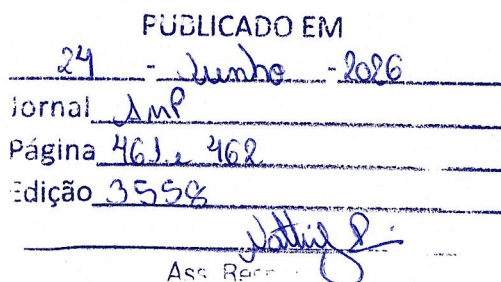 PUBLICADO EM
24 - Junho - 2026
Jornal AMP
Página 461 e 462
Edição 3558
Ass.